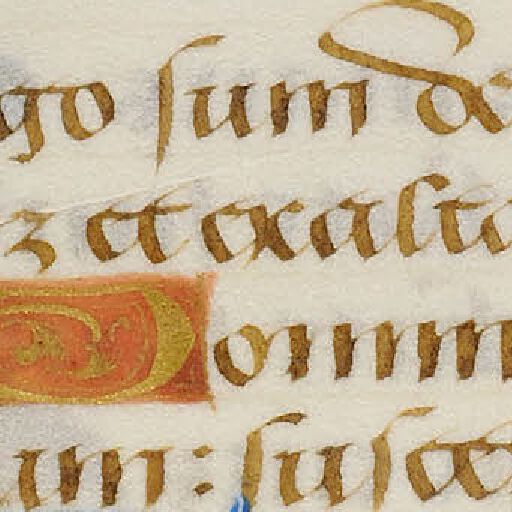 go ſum de
z et exalta
Domin
um: ſuſce